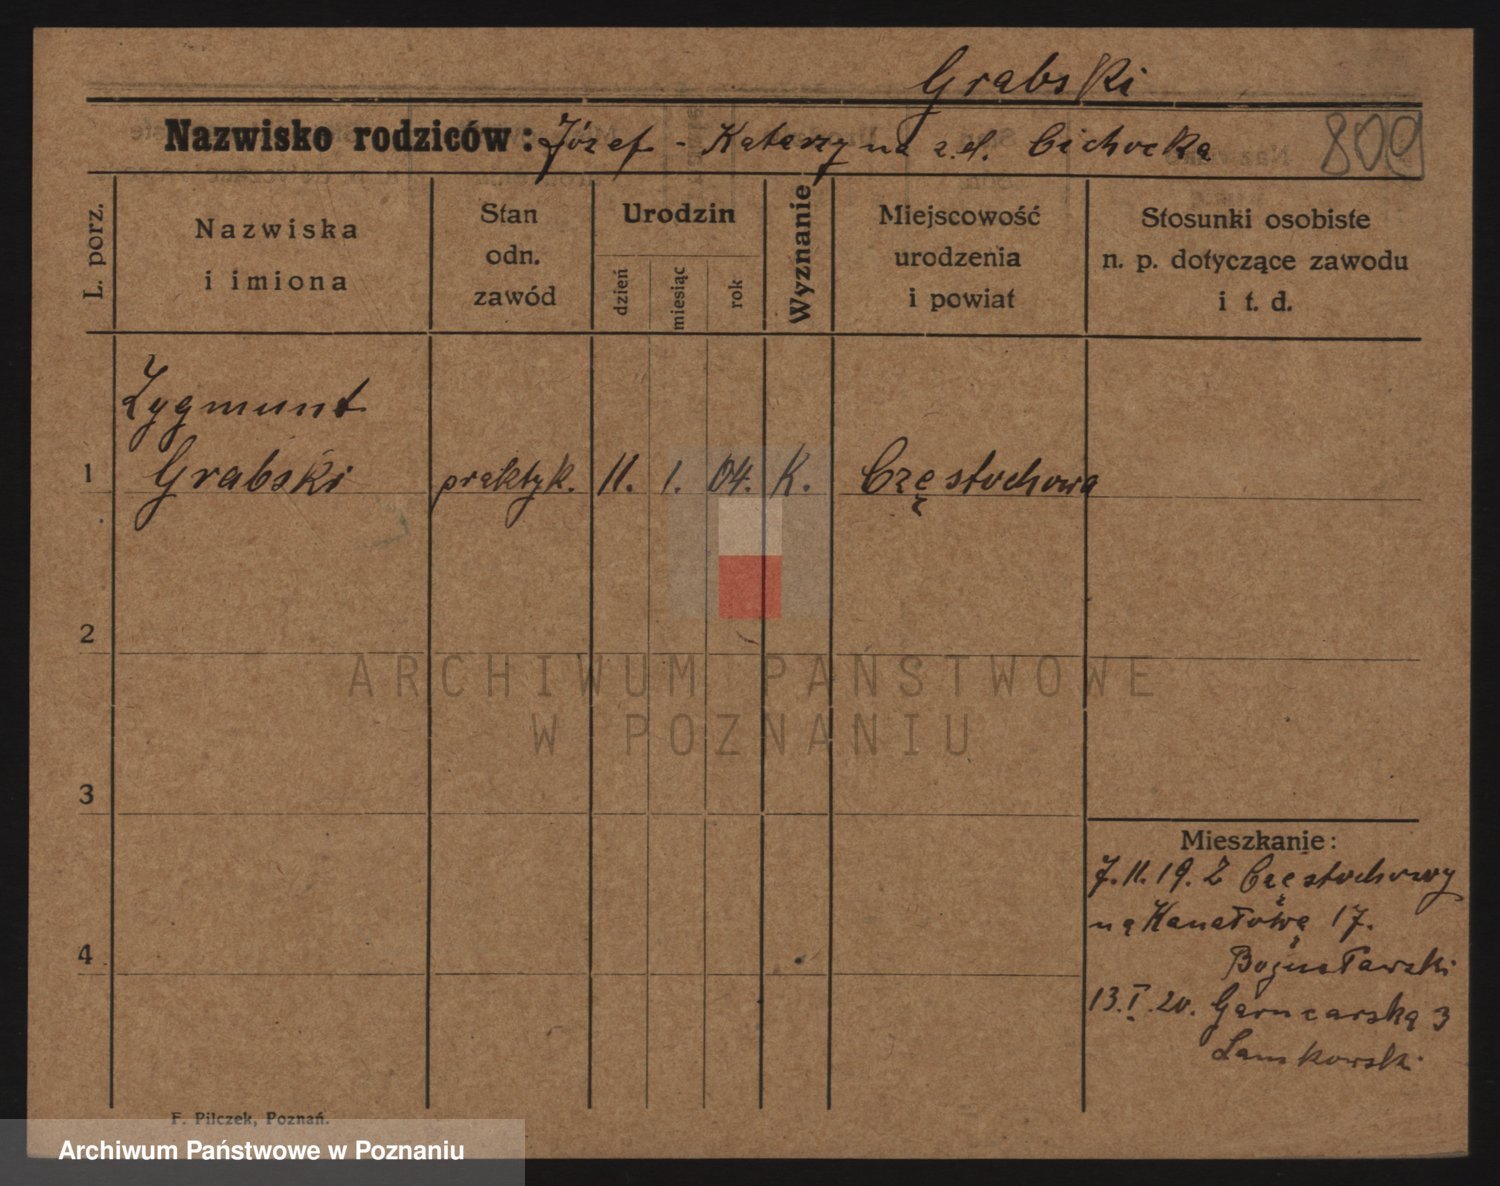 Grabski
Nazwisko rodziców: Józef - Katarzyna z d. Cichocka
809
L. porz.
Nazwiska
i imiona
Stan
odn.
zawód
Urodzin
dzień
miesiąc
rok
Wyznanie
Miejscowość
urodzenia
i powiat
Stosunki osobiste
n. p. dotyczące zawodu
i t. d.
Zygmunt
1 Grabski praktyk. 11. 1. 04. K. Częstochowa
2
ARCHIWUM PAŃSTWOWE
W POZNANIU
3
Mieszkanie:
7.11.19. Z Częstochowy
na Kanałową 17.
Bogusławski
4
13.I.20. Garncarska 3
Lamkowski
F. Pilczek, Poznań.
Archiwum Państwowe w Poznaniu